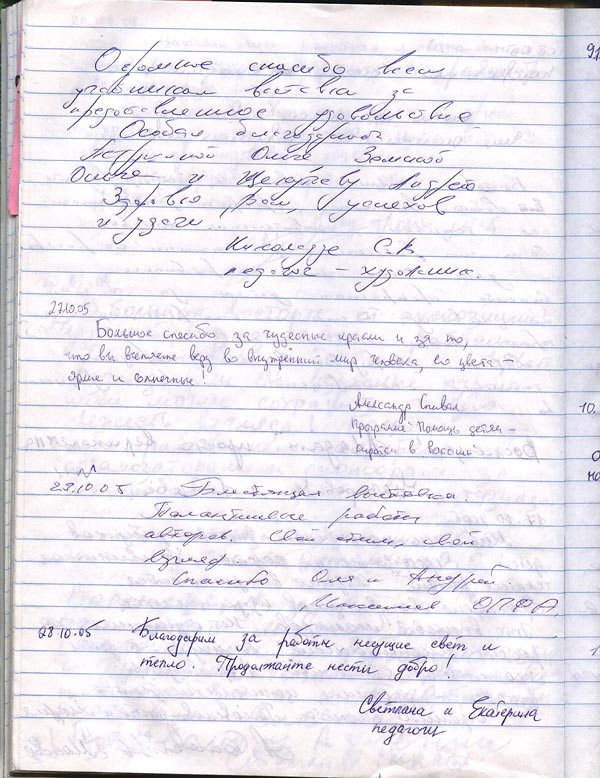 Огромное спасибо всем
участникам выставки за
предоставленное удовольствие
Особая благодарность
Ольге, Замской
Ольге и Андрею
Здоровья, Вам, успехов
и удачи...
Николадзе С.В.
педагог – художник.
27.10.05
Большое спасибо за чудесные краски и за то,
что вы вселяете веру во внутренний мир человека, его цвета –
яркие и солнечные!
Александр Спивак
Программа "Помощь детям –
сиротам в России"
28.10.05 Блестящая выставка.
Талантливые работы
авторов. Свой стиль, свой
взгляд.
Спасибо Оля и Андрей.
28.10.05 Благодарим за работы, несущие свет и
тепло. Продолжайте нести добро!
Светлана и Екатерина
педагоги
91
10.